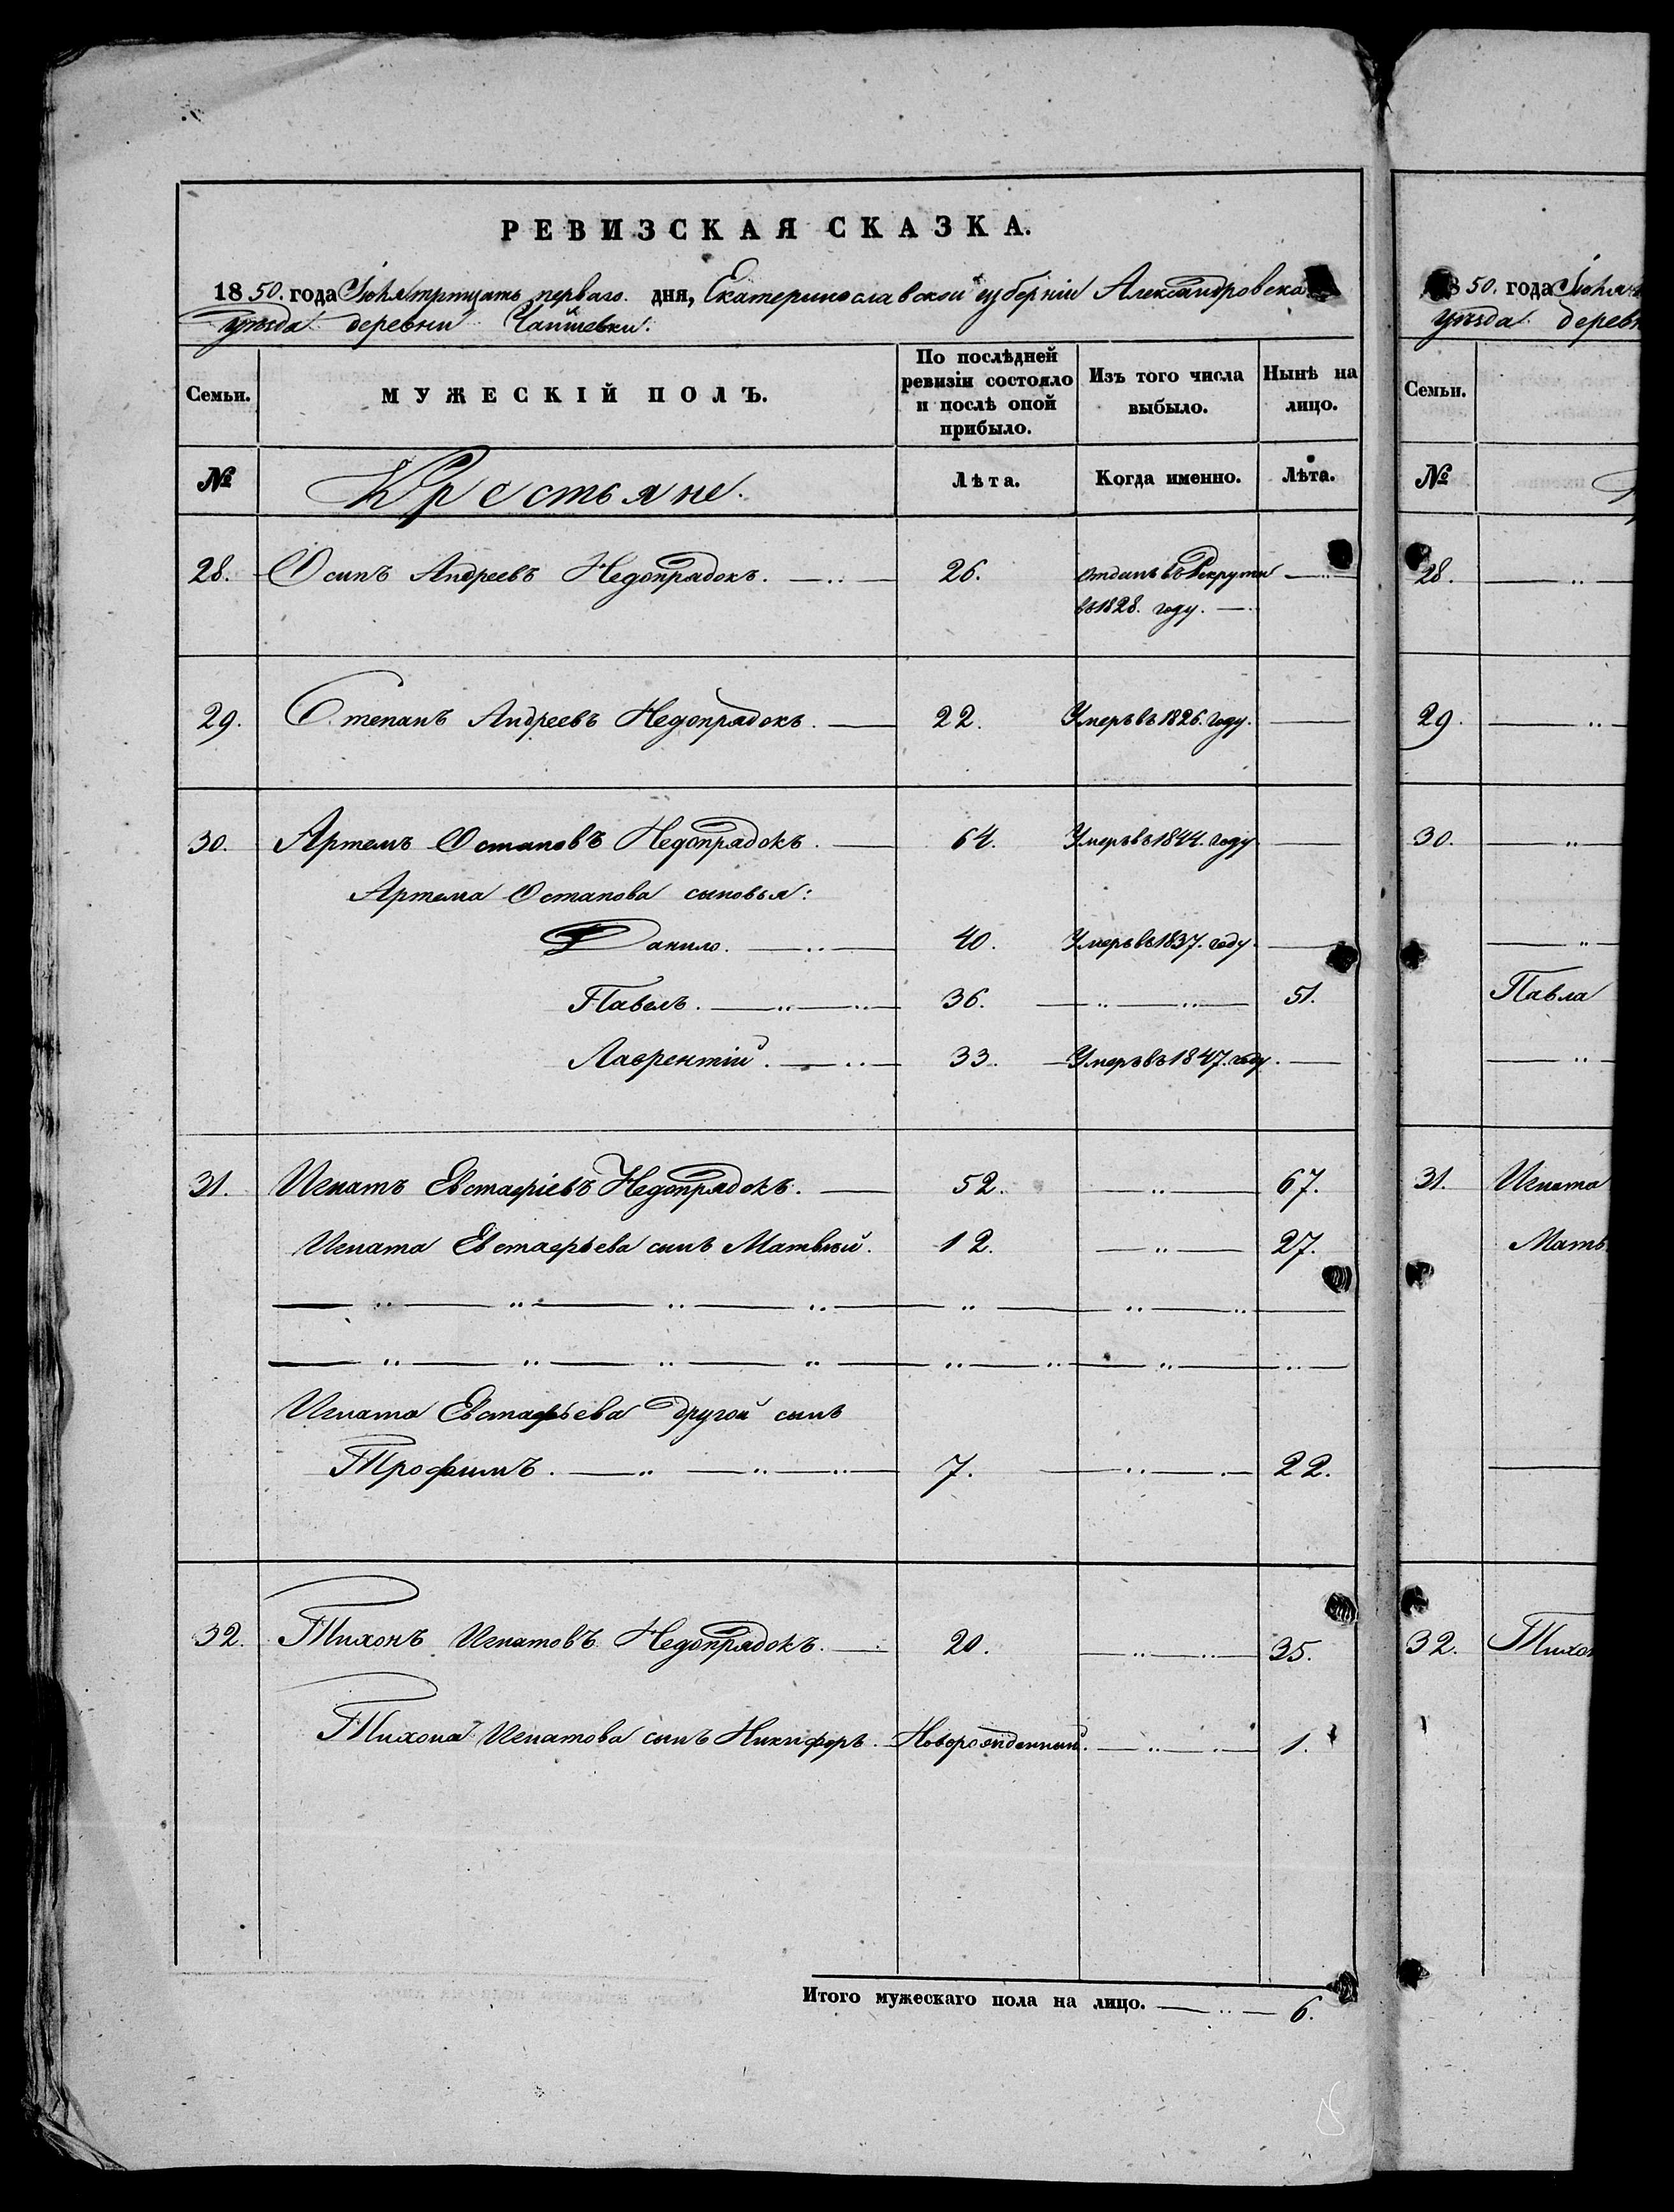 РЕВИЗСКАЯ СКАЗКА.
1850. года Іюля тритцать перваго. дня, Екатеринославской губерніи Александровска
уѣзда деревни
Семьи.
МУЖЕСКІЙ ПОЛЪ.
По послѣдней ревизіи состояло и послѣ оной прибыло.
Изъ того числа выбыло.
Нынѣ на лицо.
№
Крестьяне.
Лѣта.
Когда именно.
Лѣта.
28. Осипъ Андреевъ Недопрядокъ. 26. отданъ въ Рекруты
въ 1828. году.
29. Степанъ Андреевъ Недопрядокъ. 22. Умеръ въ 1826. году.
30. Артемъ Остаповъ Недопрядокъ. 64. Умеръ въ 1844. году
Артема Остапова сыновья:
Данило. 40. Умеръ въ 1837. году.
Павелъ. 36. 51.
Лаврентій. 33. Умеръ въ 1847. году.
31. Игнатъ Евстафіевъ Недопрядокъ. 52. 67.
Игната Евстафьева сынъ Матвѣй. 12. 27.
Игната Евстафьева другой сынъ
Трофимъ. 7. 22.
32. Тихонъ Игнатовъ Недопрядокъ. 20. 35.
Тихона Игнатова сынъ Никифоръ. Новорожденный. 1.
Итого мужескаго пола на лицо. 6.
50. года Іюля
уѣзда дерев
Семьи.
№
28.
29.
30.
Павла
31. Игната
Матв
32. Тихон